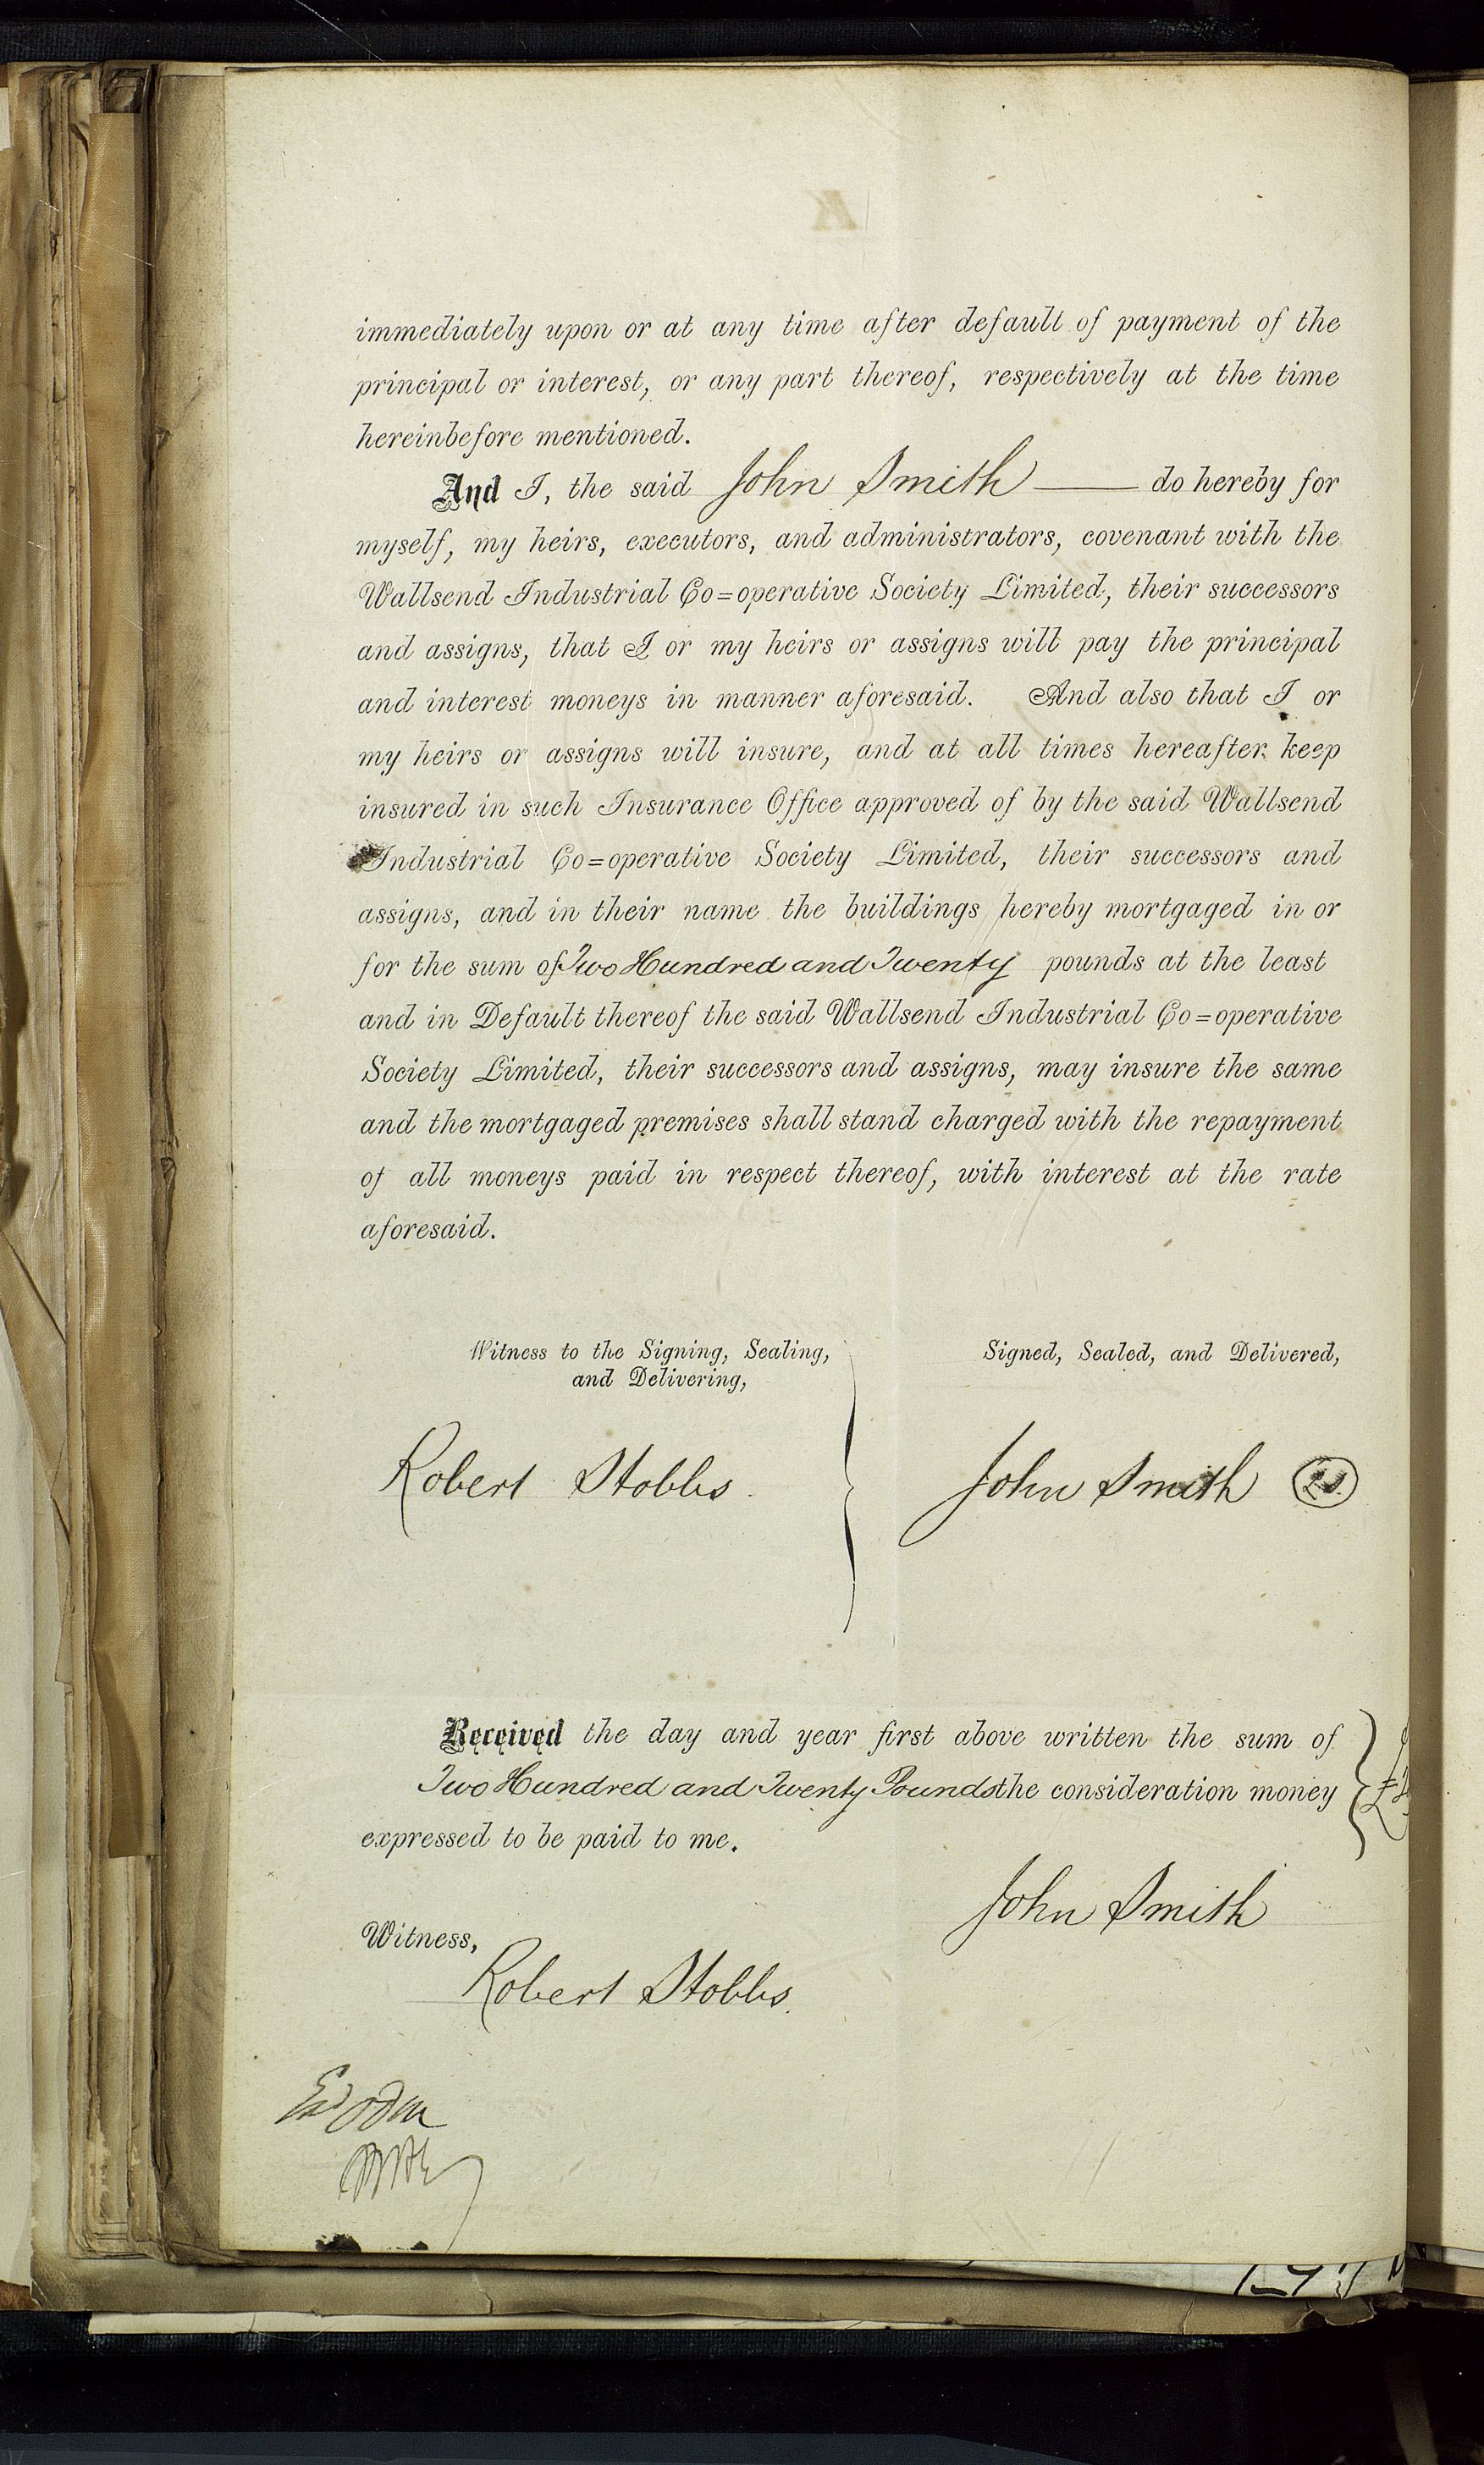 immediately upon or at any time after default of payment of the
principal or interest, or any part thereof, respectively at the time
hereinbefore mentioned.
And I, the said John Smith —— do hereby for
myself, my heirs, executors, and administrators, covenant with the
Wallsend Industrial Co=operative Society Limited, their successors
and assigns, that I or my heirs or assigns will pay the principal
and interest moneys in manner aforesaid. And also that I or
my heirs or assigns will insure, and at all times hereafter keep
insured in such Insurance Office approved of by the said Wallsend
Industrial Co=operative Society Limited, their successors and
assigns, and in their name the buildings hereby mortgaged in or
for the sum of Two Hundred and Twenty pounds at the least
and in Default thereof the said Wallsend Industrial Co=operative
Society Limited, their successors and assigns, may insure the same
and the mortgaged premises shall stand charged with the repayment
of all moneys paid in respect thereof, with interest at the rate
aforesaid.
Witness to the Signing, Sealing,
and Delivering,
Robert Stobbs.
Signed, Sealed, and Delivered,
John Smith
Received the day and year first above written the sum of
Two Hundred and Twenty Pounds the consideration money
expressed to be paid to me.
John Smith
Witness,
Robert Stobbs.